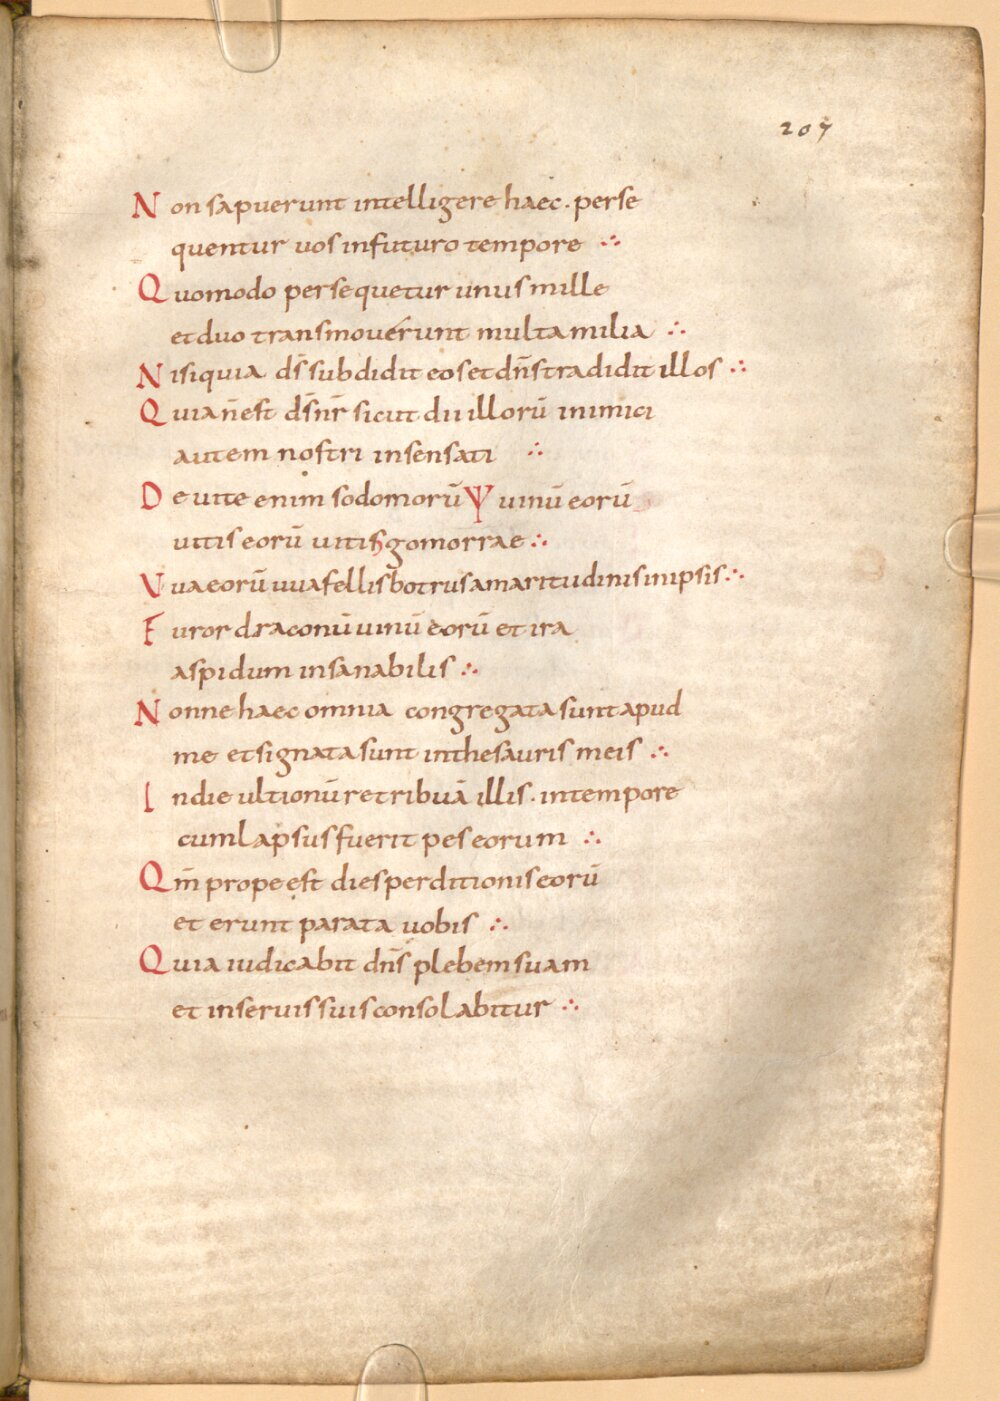 207
Non sapuerunt intelligere haec. perse
quentur uos in futuro tempore ∴
Quomodo persequetur unus mille
et duo transmouerunt multa milia ∴
Nisi quia d̄s subdidit eos et dn̄s tradidit illos ∴
Quia n̄ est d̄s nr̄ sicut dii illorū inimici
autem nostri insensati ∴
De uite enim sodomorū Ψ uinū eorū
uitis eorū uitis gomorrae ∴
Vua eorū uua fellis botrus amaritudinis in ipsis ∴
Furor draconū uinū eorū et ira
aspidum insanabilis ∴
Nonne haec omnia congregata sunt apud
me et signata sunt in thesauris meis ∴
In die ultionū retribuā illis. in tempore
cum lapsus fuerit pes eorum ∴
Qm̄ prope est dies perditionis eorū
et erunt parata uobis ∴
Quia iudicabit dn̄s plebem suam
et in seruis suis consolabitur ∴